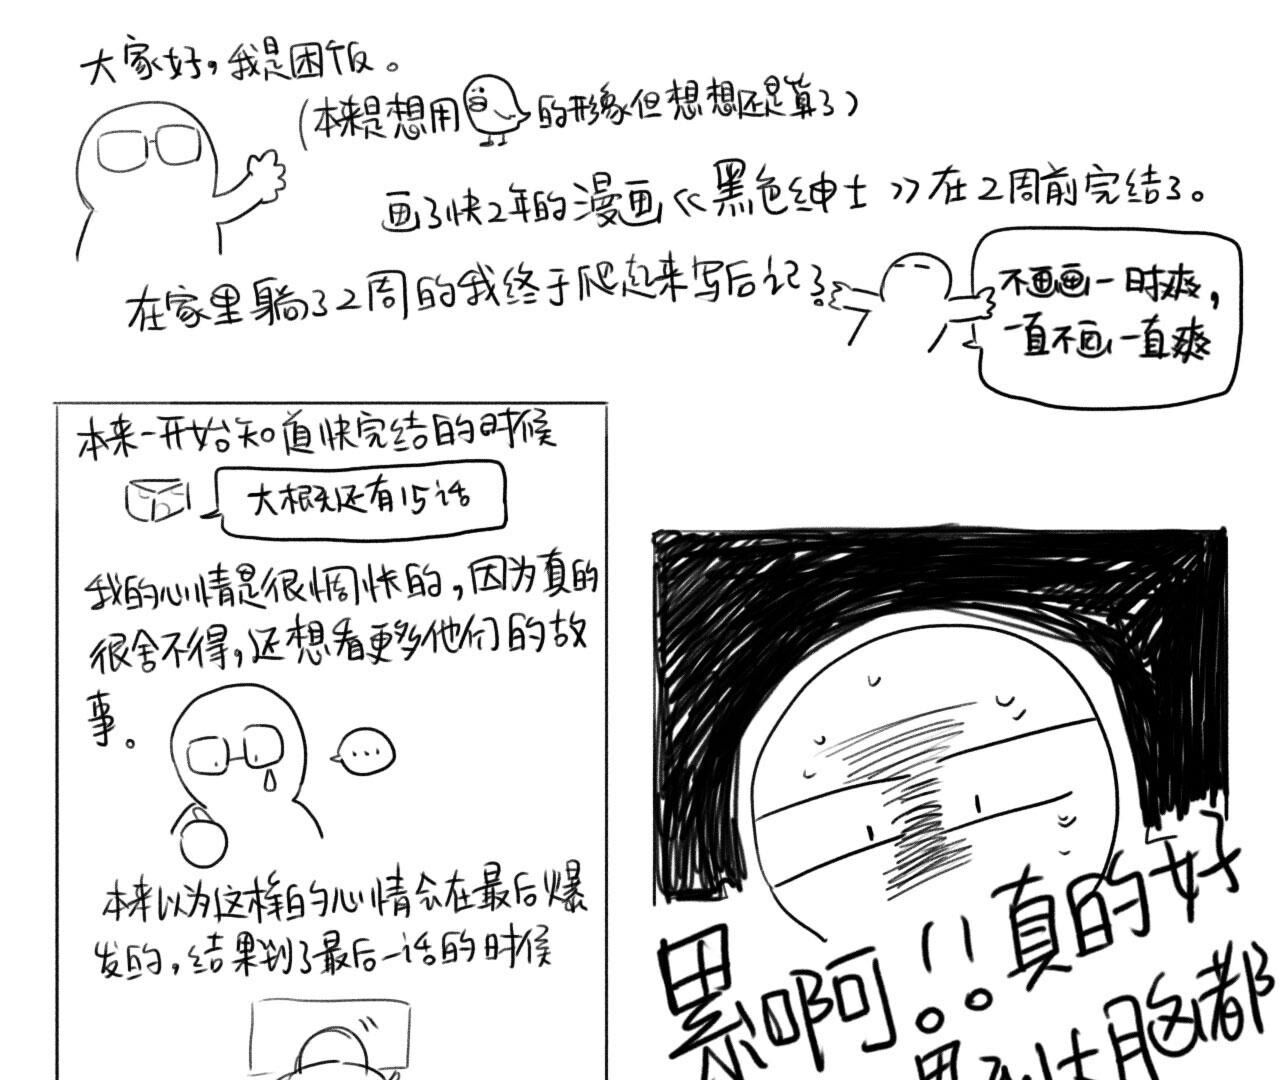 大家好，我是困饭。
（本来是想用的形象但想想还是算了）
画了快2年的漫画《黑色绅士》在2周前完结了。
在家里躺了2周的我终于爬起来写后记了
不画画一时爽，
一直不画一直爽
本来一开始知道快完结的时候
大概还有15话
我的心情是很惆怅的，因为真的
很舍不得，还想看更多他们的故
事。
...
本来以为这样的心情会在最后爆
发的，结果到了最后一话的时候
累啊！！真的好
累到大脑都